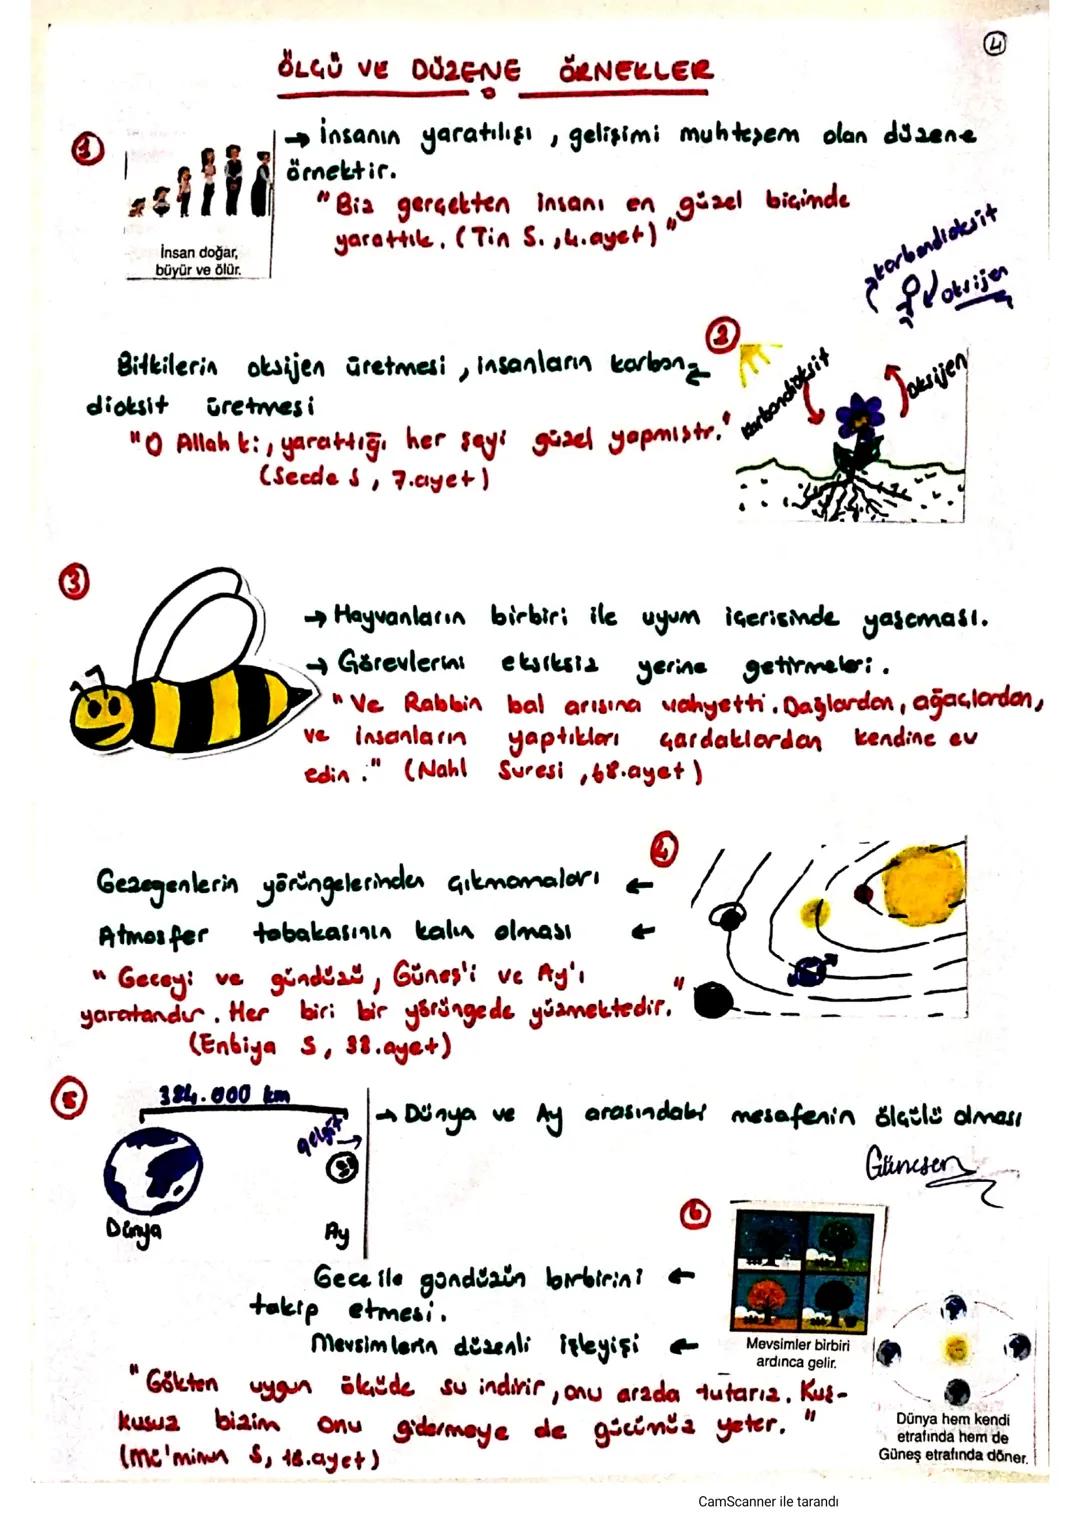 4
ÖLÇÜ VE DÜZENE ÖRNEKLER
1
→ İnsanın yaratılışı, gelişimi muhteşem olan düzene
örnektir.
"Biz gerçekten insanı en güzel biçimde
yarattık. (Tin S., 4.ayet)"
İnsan doğar,
büyür ve ölür.
karbondioksit
oksijen
2
Bitkilerin oksijen üretmesi, insanların karbon-
dioksit üretmesi
"O Allah ki, yarattığı her şeyi güzel yapmıştr."
(Secde S, 7.ayet)
karbondioksit
oksijen
3
→ Hayvanların birbiri ile uyum içerisinde yaşaması.
→ Görevlerini eksiksiz yerine getirmeleri.
"Ve Rabbin bal arısına vahyetti. Dağlardan, ağaçlardan,
ve insanların yaptıkları çardaklardan kendine ev
edin." (Nahl Suresi, 68.ayet)
4
Gezegenlerin yörüngelerinden çıkmamaları ←
Atmosfer tabakasının kalın olması ←
"Geceyi ve gündüzü, Güneş'i ve Ay'ı
yaratandır. Her biri bir yörüngede yüzmektedir."
(Enbiya S, 33.ayet)
5
384.000 km
gelgit
Dünya
Ay
→ Dünya ve Ay arasındaki mesafenin ölçülü olması
Günesen
6
Gece ile gündüzün birbirini ←
takip etmesi.
Mevsimlerin düzenli işleyişi ←
"Gökten uygun ölçüde su indirir, onu arada tutarız. Kuş-
kusuz bizim onu gidermeye de gücümüz yeter."
(Mü'minun S, 18.ayet)
Mevsimler birbiri
ardınca gelir.
Dünya hem kendi
etrafında hem de
Güneş etrafında döner.
CamScanner ile tarandı